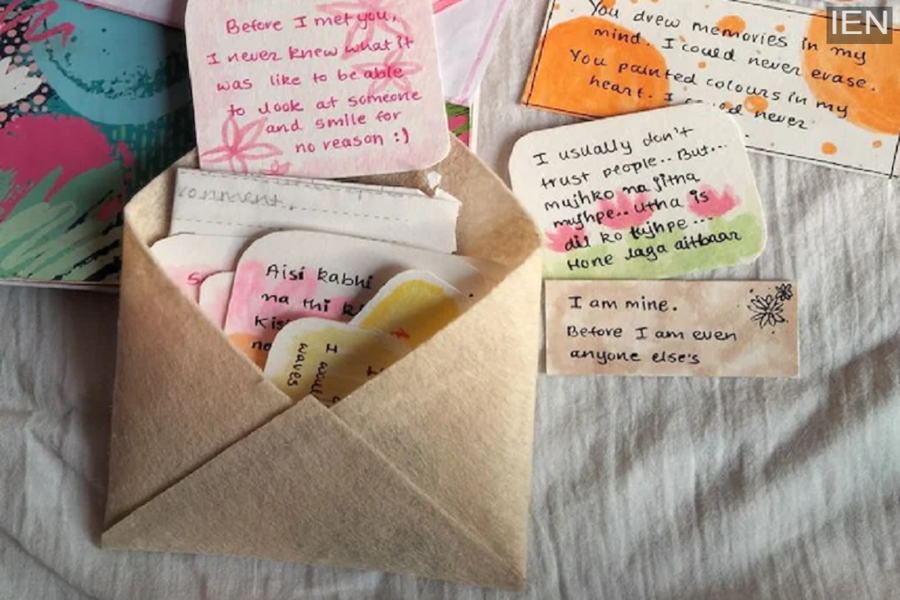 Before I met you,
I never knew what it
was like to be able
to look at someone
and smile for
no reason :)
You drew memories in my
mind. I could never erase.
You painted colours in my
heart. I never
IEN
I usually don't
trust people.. But...
mujhko na jitna
mujhpe.. utna is
dil ko tujhpe ...
Hone laga aitbaar
I am mine.
Before I am even
anyone else's
Aisi kabhi
na thi
no
I
waves